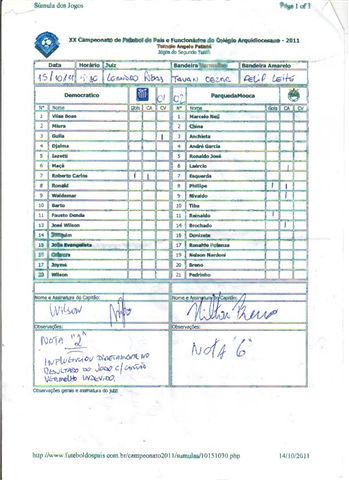 Súmula dos Jogos Page 1 of 1
XX Campeonato de Futebol de Pais e Funcionários do Colégio Arquidiocesano - 2011
Jogos do Segundo Turno
Data Horário Juiz Bandeira Vermelho Bandeira Amarelo
15/10/11
Democratico ParquedaMooca
Nº Nome Gols CA CV Nº Nome Gols CA CV
1 Vilas Boas 1 Marcelo Neij
2 Miura 2 China
3 Guila 3 Anchieta
4 Djalma 4 André Garcia
5 Iazetti 5 Ronaldo José
6 Maçã 6 Laércio
7 Roberto Carlos 7 Esquerda
8 Ronald 8 Phillipe
9 Waldemar 9 Nivaldo
10 Berto 10 Tibu
11 Fausto Donda 11 Reinaldo
13 José Wilson 14 Brochado
14 16 Donizete
15 João Evangelista 17 Ronaldo Polenze
16 19 Nelson Nardoni
17 Jayme 20 Breno
20 Wilson 21 Pedrinho
Nome e Assinatura do Capitão: Nome e Assinatura do Capitão:
Wilson
Observações: Observações:
NOTA "2" NOTA "6"
INFLUENCIOU DIRETAMENTE NO
RESULTADO DO JOGO C/ CARTÃO
VERMELHO INDEVIDO.
Observações gerais e assinatura do juiz:
http://www.futeboldospais.com.br/campeonato2011/sumulas/10151030.php 14/10/2011